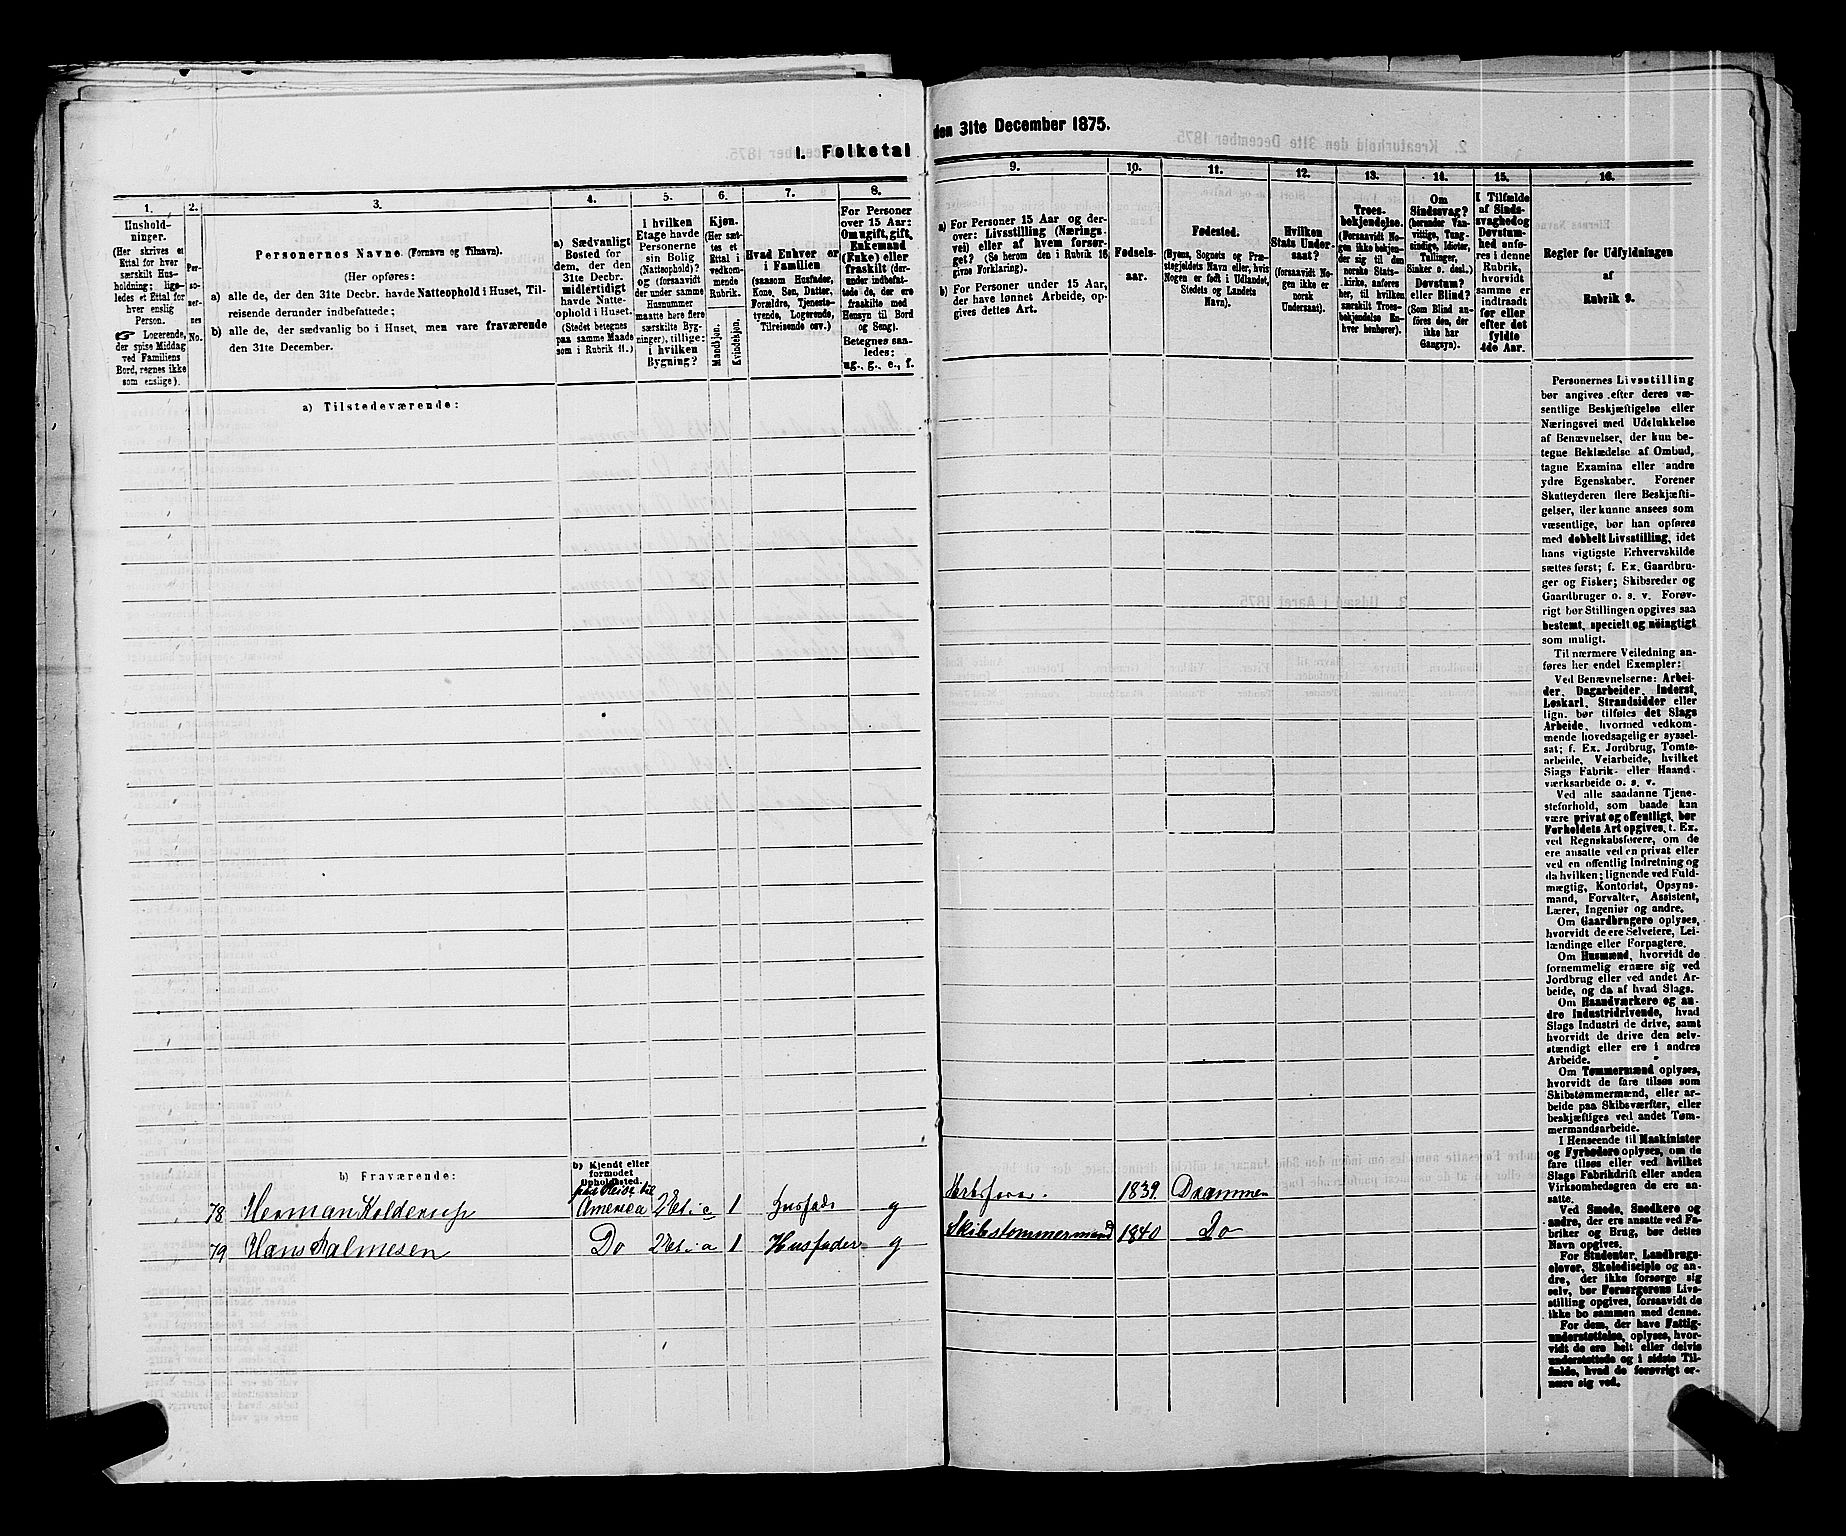 1. Folketal
den 31te December 1875.
1.
2.
3.
4.
5.
6.
7.
8.
9.
10.
11.
12.
13.
14.
15.
16.
Husholdninger.
(Her skrives et
Ettal for hver
særskilt Husholdning;
ligeledes et Ettal for
hver enslig
Person.
Logerende,
der spise Middag
ved Familiens
Bord, regnes ikke
som enslige).
Personernes
No.
Personernes Navne. (Fornavn og Tilnavn).
(Her opføres:
a) alle de, der den 31te Decbr. havde Natteophold i Huset, Tilreisende
derunder indbefattede;
b) alle de, der sædvanlig bo i Huset, men vare fraværende
den 31te December.
a) Sædvanligt
Bosted for
dem, der den
31te Decbr.
midlertidigt
havde Natteophold
i Huset.
(Stedet betegnes
paa samme Maade
som i Rubrik 11.)
I hvilken
Etage havde
Personerne
sin Bolig
(Natteophold)?
og (forsaavidt
der under samme
Husnummer
maatte høre flere
særskilte Bygninger),
tillige:
i hvilken
Bygning?
Kjøn.
(Her sættes
et
Ettal i
vedkommende
Rubrik.
Mandkjøn.
Kvindekjøn.
Hvad Enhver er
i Familien
(saasom Husfader,
Kone, Søn, Datter,
Forældre, Tjenestetyende,
Logerende,
Tilreisende osv.)
For Personer
over 15 Aar:
Om ugift, gift,
Enkemand
(Enke) eller
fraskilt (derunder
indbefattede
de, der ere
fraskilte med
Hensyn til Bord
og Seng).
Betegnes saaledes:
ug., g., e., f.
a) For Personer 15 Aar og derover:
Livsstilling (Næringsvei)
eller af hvem forsørget?
(Se herom den i Rubrik 16
givne Forklaring).
b) For Personer under 15 Aar,
der have lønnet Arbeide, opgives
dettes Art.
Fødselsaar.
Fødested.
(Byens, Sognets og Præstegjeldets
Navn eller, hvis
Nogen er født i Udlandet,
Stedets og Landets
Navn).
Hvilken
Stats Undersaat?
(forsaavidt Nogen
ikke er
norsk
Undersaat).
Troesbekjendelse.
(Forsaavidt Nogen
ikke bekjender
sig til den
norske Statskirke,
anføres
her, til hvilken
særskilt Troesbekjendelse
Enhver
henhører).
Om
Sindssvag?
(herunder Vanvittige,
Tungsindige,
Idioter,
Tullinger,
Sinker o. desl.)
Døvstum?
eller Blind?
(Som Blind anføres
den, der
ikke har
Gangsyn).
I Tilfælde
af Sindssvaghed
og
Døvstumhed
anføres
i denne
Rubrik,
hvorvidt
samme er
indtraadt
før eller
efter det
fyldte
4de Aar.
Regler for Udfyldningen
af
Rubrik 9.
a) Tilstedeværende:
Personernes Livsstilling
bør angives efter deres væsentlige
Beskjæftigelse eller
Næringsvei med Udelukkelse
af Benævnelser, der kun betegne
Beklædelse af Ombud,
tagne Examina eller andre
ydre Egenskaber. Forener
Skatteyderen flere Beskjæftigelser,
der kunne ansees som
væsentlige, bør han opføres
med dobbelt Livsstilling, idet
hans vigtigste Erhvervskilde
sættes først; f. Ex. Gaardbruger
og Fisker; Skibsreder og
Gaardbruger o. s. v. Forøvrigt
bør Stillingen opgives saa
bestemt, specielt og nøiagtigt
som muligt.
Til nærmere Veiledning anføres
her endel Exempler:
Ved Benævnelserne: Arbeider,
Dagarbeider, Inderst,
Løskarl, Strandsidder eller
lign. bør tilføies det Slags
Arbeide, hvormed vedkommende
hovedsagelig er sysselsat;
f. Ex. Jordbrug, Tomtearbeide,
Veiarbeide, hvilket
Slags Fabrik- eller Haandværksarbeide
o. s. v.
Ved alle saadanne Tjenesteforhold,
som baade kan
være privat og offentligt, bør
Forholdets Art opgives, t. Ex.
ved Regnskabsførere, om de
ere ansatte ved en privat eller
ved en offentlig Indretning og
da hvilken; lignende ved Fuldmægtig,
Kontorist, Opsynsmand,
Forvalter, Assistent,
Lærer, Ingeniør og andre.
Om Gaardbrugere oplyses,
hvorvidt de ere Selveiere, Leilændinge
eller Forpagtere.
Om Husmænd, hvorvidt de
fornemmelig ernære sig ved
Jordbrug eller ved andet Arbeide,
og da af hvad Slags.
Om Haandværkere og andre
Industridrivende, hvad
Slags Industri de drive, samt
hvorvidt de drive den selvstændigt
eller ere i andres
Arbeide.
Om Tømmermænd oplyses,
hvorvidt de fare tilsøs som
Skibstømmermænd, eller arbeide
paa Skibsværfter, eller
beskjæftiges ved andet Tømmermandsarbeide.
I Henseende til Maskinister
og Fyrbødere oplyses, om de
fare tilsøs eller ved hvilket
Slags Fabrikdrift eller anden
Virksomhedsgren de ere ansatte.
Ved Smede, Snedkere og
andre, der ere ansatte ved Fabriker
og Brug, bør dettes
Navn opgives.
For Studenter, Landbrugselever,
Skoledisciple og andre,
der ikke forsørge sig
selv, bør Forsørgerens Livsstilling
opgives, forsaavidt de
ikke bo sammen med denne.
For dem, der have Fattigunderstøttelse,
oplyses, hvorvidt
de ere helt eller delvis
understøttede og i sidste Tilfælde,
hvad de forøvrigt ernære
sig ved.
b) Fraværende:
b) Kjendt eller
formodet
Opholdssted.
78 Herman Kolderup paa Reise til America 2 Et. c 1 husfader g 1839. Drammen
79 Hans Dalmesen Do 2 Et. a 1 Husfader g Skibstømmermand 1840 Do